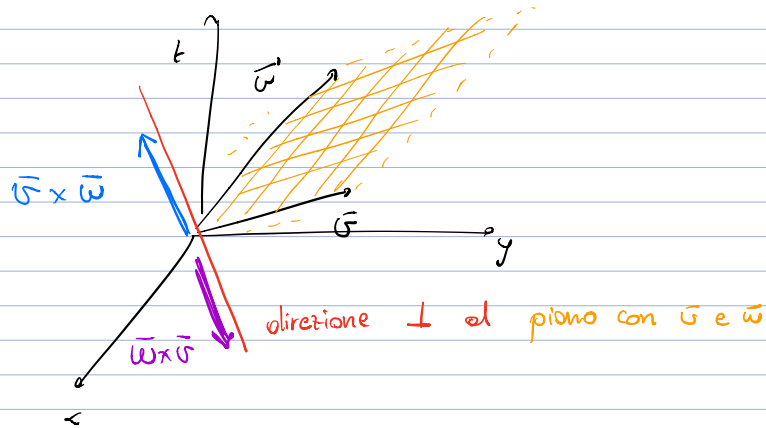 t
w̄
v̄ × w̄
v̄
y
direzione ⊥ al piano con v̄ e w̄
w̄×v̄
x